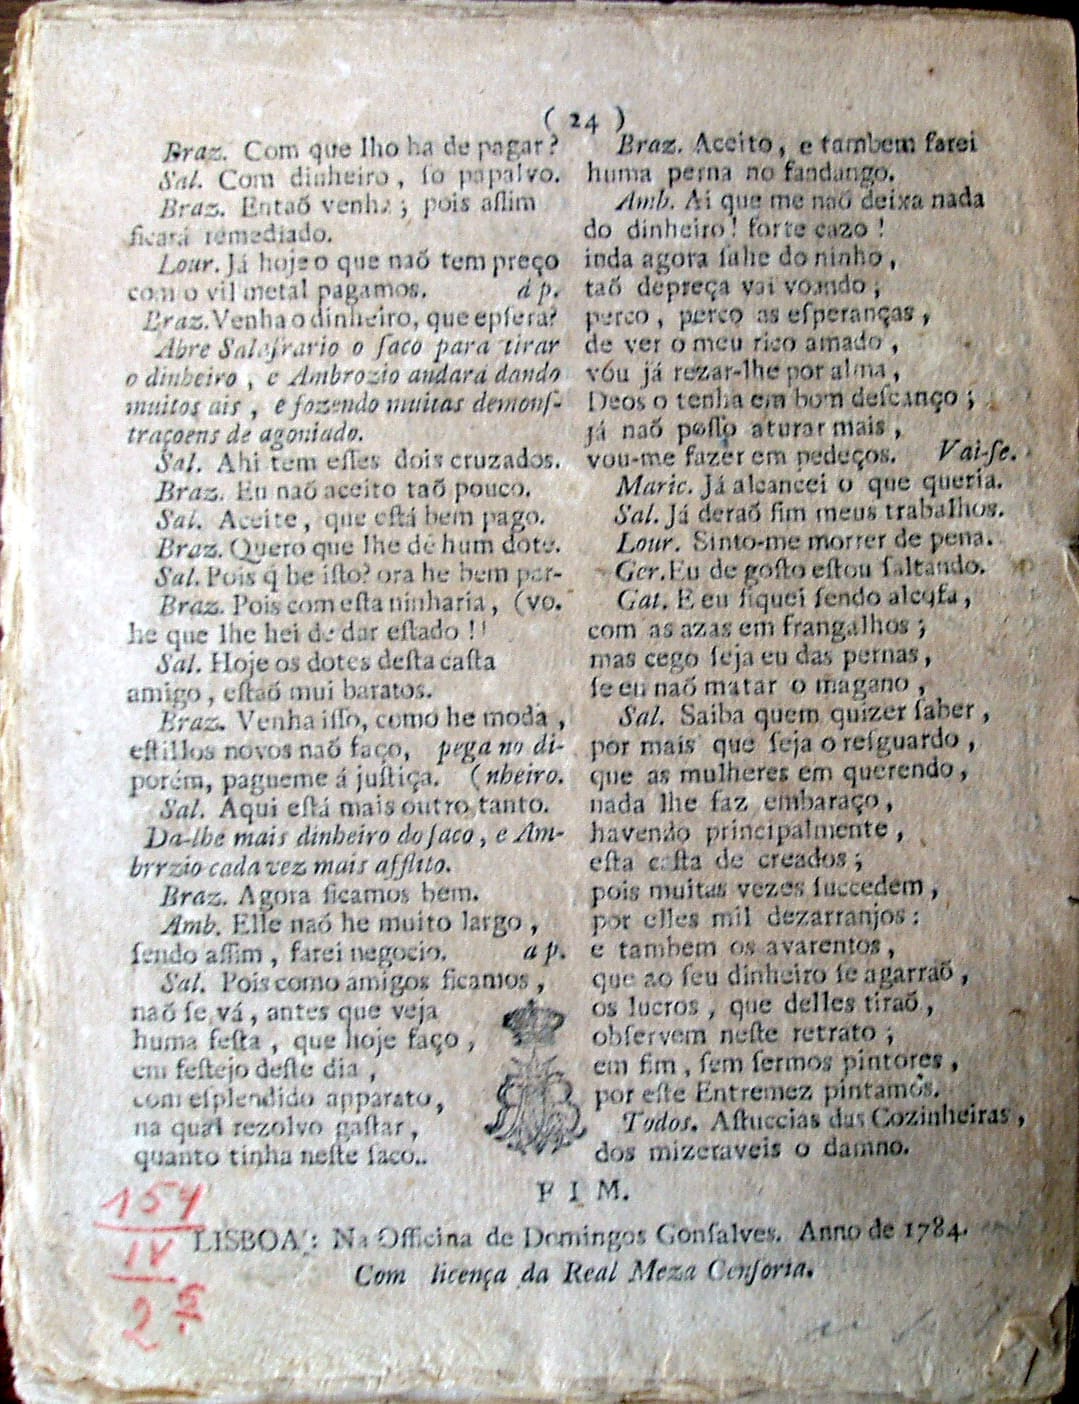 ( 24 )
Braz. Com que lho ha de pagar?
Sal. Com dinheiro, ſo papalvo.
Braz. Entaõ venha; pois aſſim
ficará remediado.
Lour. Já hoje o que naõ tem preço
com o vil metal pagamos. á p.
Braz. Venha o dinheiro, que epſera?
Abre Salaſrario o ſaco para tirar
o dinheiro, e Ambrozio andará dando
muitos ais, e fazendo muitas demonſ-
traçoens de agoniado.
Sal. Ahi tem eſſes dois cruzados.
Braz. Eu naõ aceito taõ pouco.
Sal. Aceite, que eſtá bem pago.
Braz. Quero que lhe dê hum dote.
Sal. Pois q̃ he iſto? ora he bem par-
Braz. Pois com eſta ninharia, (vo.
he que lhe hei de dar eſtado!!
Sal. Hoje os dotes deſta caſta
amigo, eſtaõ mui baratos.
Braz. Venha iſſo, como he moda,
eſtillos novos naõ faço, pega no di-
porém, pagueme á juſtiça. (nheiro.
Sal. Aqui eſtá mais outro tanto.
Da-lhe mais dinheiro do ſaco, e Am-
brrzio cada vez mais afflito.
Braz. Agora ficamos bem.
Amb. Elle naõ he muito largo,
ſendo aſſim, farei negocio. a p.
Sal. Pois como amigos ficamos,
naõ ſe vá, antes que veja
huma feſta, que hoje faço,
em feſtejo deſte dia,
com eſplendido apparato,
na qual rezolvo gaſtar,
quanto tinha neſte ſaco..
Braz. Aceito, e tambem farei
huma perna no fandango.
Amb. Ai que me naõ deixa nada
do dinheiro! forte cazo!
inda agora ſahe do ninho,
taõ depreça vai voando;
perco, perco as eſperanças,
de ver o meu rico amado,
vóu já rezar-lhe por alma,
Deos o tenha em bom deſcanço;
já naõ poſſo aturar mais,
vou-me fazer em pedeços. Vai-ſe.
Maric. Já alcancei o que queria.
Sal. Já deraõ fim meus trabalhos.
Lour. Sinto-me morrer de pena.
Ger. Eu de goſto eſtou ſaltando.
Gat. E eu fiquei ſendo alcofa,
com as azas em frangalhos;
mas cego ſeja eu das pernas,
ſe eu naõ matar o magano,
Sal. Saiba quem quizer ſaber,
por mais que ſeja o reſguardo,
que as mulheres em querendo,
nada lhe faz embaraço,
havendo principalmente,
eſta caſta de creados;
pois muitas vezes ſuccedem,
por elles mil dezarranjos:
e tambem os avarentos,
que ao ſeu dinheiro ſe agarraõ,
os lucros, que delles tiraõ,
obſervem neſte retrato;
em fim, ſem ſermos pintores,
por eſte Entremez pintamos.
Todos. Aſtuccias das Cozinheiras,
dos mizeraveis o damno.
F I M.
LISBOA: Na Officina de Domingos Gonſalves. Anno de 1784.
Com licença da Real Meza Cenſoria.
154
IV
2